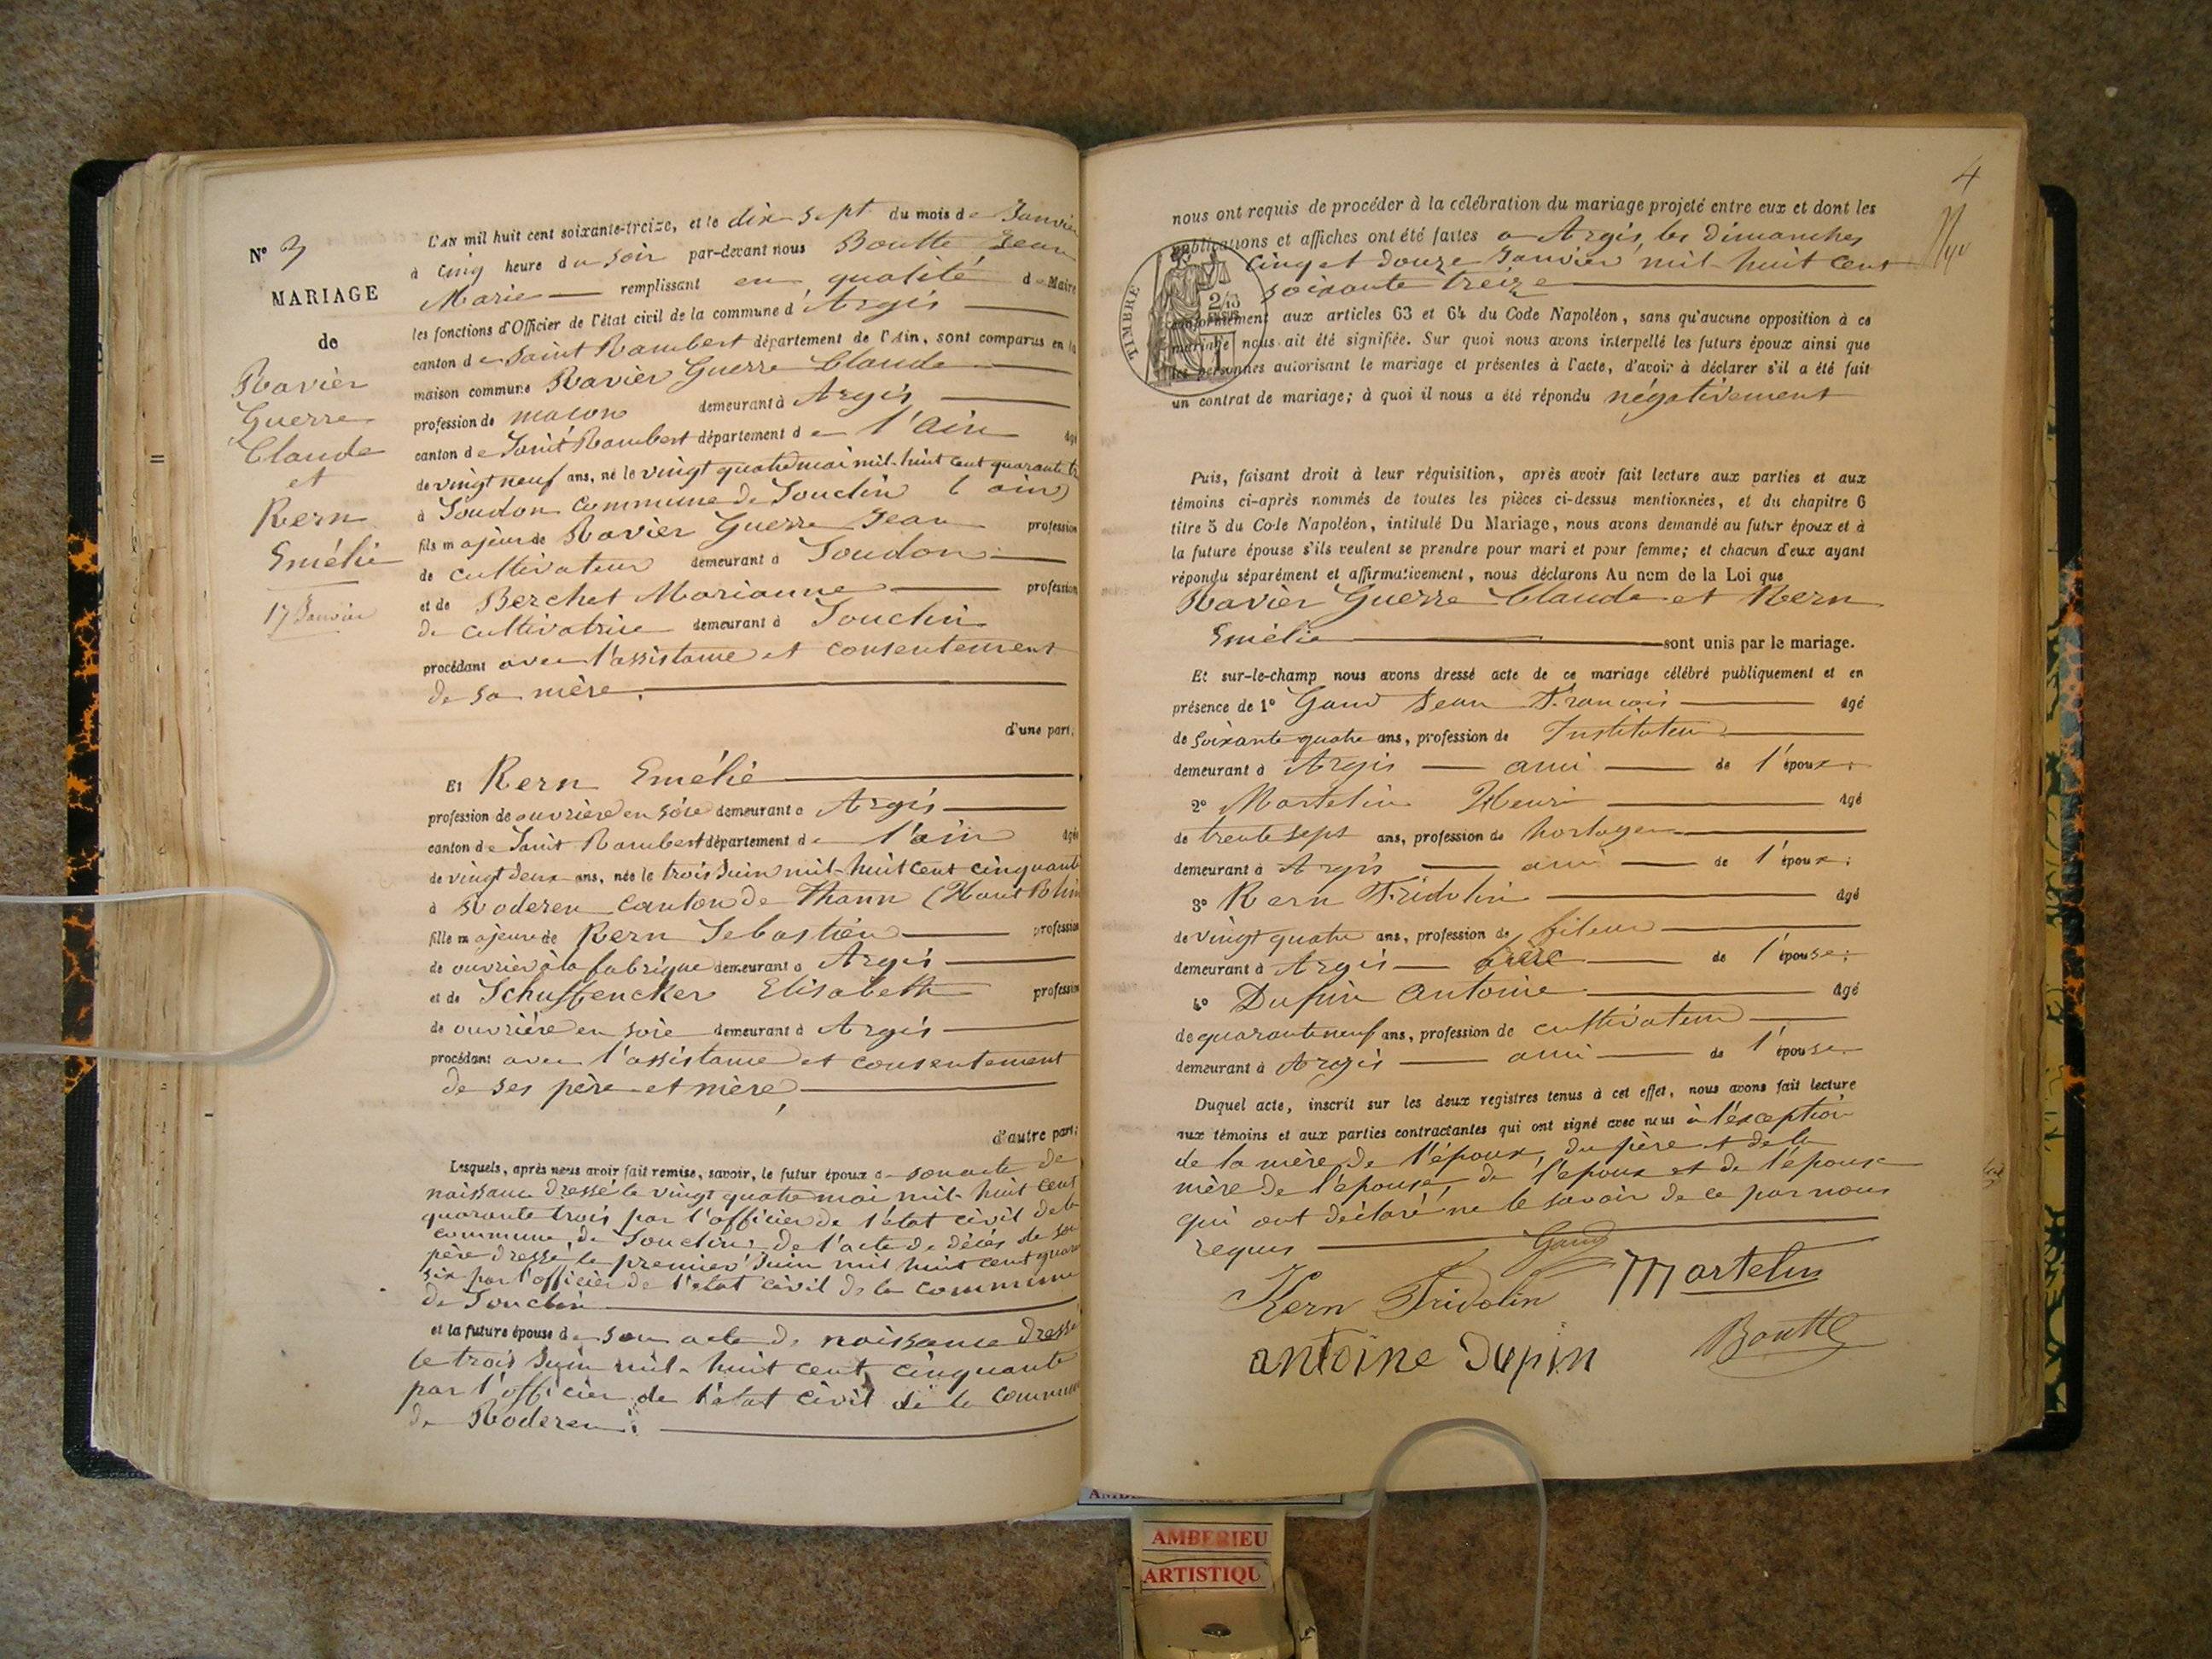 N° 3
MARIAGE
de
Ravier
Guerre
Claude
et
Kern
Emélie
17 Janvier
L'an mil huit cent soixante-treize, et le dix sept du mois de Janvier
à cinq heure du soir par-devant nous Boutte Jean
Marie remplissant en qualité de Maire
les fonctions d'Officier de l'état civil de la commune d'Argis
canton de Saint Rambert département de l'Ain, sont comparus en la
maison commune Ravier Guerre Claude
profession de maçon demeurant à Argis
canton de Saint Rambert département de l'Ain âgé
de vingt neuf ans, né le vingt quatre mai mil-huit cent quarante
à Soudon commune de Souclin (ain)
fils majeur de Ravier Guerre Jean profession
de cultivateur demeurant à Soudon
et de Berchet Marianne profession
de cultivatrice demeurant à Souclin
procédant avec l'assistance et consentement
de sa mère,
d'une part;
Et Kern Emélie
profession de ouvrière en soie demeurant à Argis
canton de Saint Rambert département de l'ain âgée
de vingt deux ans, née le trois Juin mil-huit cent cinquante
à Roderen canton de Thann (Haut Rhin
fille majeure de Kern Sebastien profession
de ouvrier à la fabrique demeurant à Argis
et de Schuffencker Elisabeth profession
de ouvrière en soie demeurant à Argis
procédant avec l'assistance et consentement
de ses père et mère,
d'autre part;
Lesquels, après nous avoir fait remise, savoir, le futur époux de son acte de
naissance dressé le vingt quatre mai mil-huit cent
quarante trois par l'officier de l'état civil de la
commune de Souclin de l'acte de décès de son
père dressé le premier Juin mil huit cent quara
six par l'officier de l'état civil de la commune
de Souclin
et la future épouse de son acte de naissance dressé
le trois Juin mil-huit cent cinquante
par l'officier de l'état civil de la commune
de Roderen;
4
nous ont requis de procéder à la célébration du mariage projeté entre eux et dont les
publications et affiches ont été faites a Argis, les dimanches
cinq et douze Janvier mil-huit cent
soixante treize
TIMBRE
conformément aux articles 63 et 64 du Code Napoléon, sans qu'aucune opposition à ce
mariage nous ait été signifiée. Sur quoi nous avons interpellé les futurs époux ainsi que
les personnes autorisant le mariage et présentes à l'acte, d'avoir à déclarer s'il a été fait
un contrat de mariage; à quoi il nous a été répondu négativement
Puis, faisant droit à leur réquisition, après avoir fait lecture aux parties et aux
témoins ci-après nommés de toutes les pièces ci-dessus mentionnées, et du chapitre 6
titre 5 du Code Napoléon, intitulé Du Mariage, nous avons demandé au futur époux et à
la future épouse s'ils veulent se prendre pour mari et pour femme; et chacun d'eux ayant
répondu séparément et affirmativement, nous déclarons Au nom de la Loi que
Ravier Guerre Claude et Kern
Emélie sont unis par le mariage.
Et sur-le-champ nous avons dressé acte de ce mariage célébré publiquement et en
présence de 1° Gaud Jean François âgé
de soixante quatre ans, profession de Instituteur
demeurant à Argis ami de l'époux.
2° Martelin Henri âgé
de trente sept ans, profession de horloger
demeurant à Argis ami de l'époux;
3° Kern Fridolin âgé
de vingt quatre ans, profession de fileur
demeurant à Argis frère de l'épouse;
4° Dupin Antoine âgé
de quarante neuf ans, profession de cultivateur
demeurant à Argis ami de l'épouse
Duquel acte, inscrit sur les deux registres tenus à cet effet, nous avons fait lecture
aux témoins et aux parties contractantes qui ont signé avec nous à l'exception
de la mère de l'époux, du père et de la
mère de l'épouse, de l'époux et de l'épouse
qui ont déclaré ne le savoir de ce par nous
requis
Gaud
Kern Fridolin Martelin
antoine Dupin Boutte
AMBERIEU
ARTISTIQU